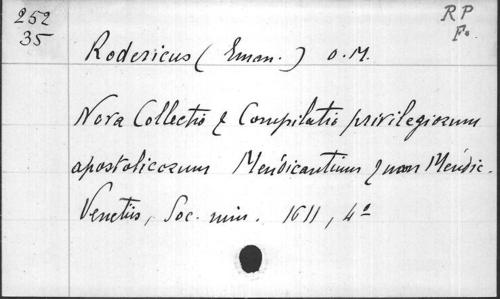 252
35
R P
F.
Rodericus (Eman.) O.M.
Nova Collectio & Compilatio privilegiorum
apostolicorum Mendicantium & non Mendic.
Venetiis, Soc. min. 1611, 4º